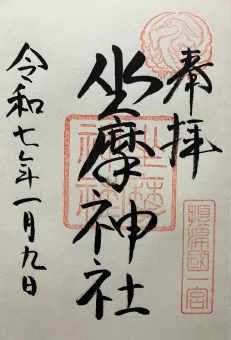 奉拝
坐摩神社
令和七年一月九日
摂津國一宮